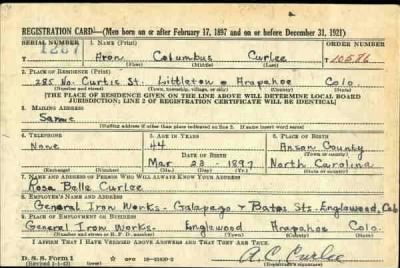 REGISTRATION CARD—(Men born on or after February 17, 1897 and on or before December 31, 1921)
SERIAL NUMBER 1. NAME (Print) ORDER NUMBER
T 1287 Aron Columbus Curlee T 10586
(First) (Middle) (Last)
2. PLACE OF RESIDENCE (Print)
285 No. Curtis St. Littleton Arapahoe Colo
(Number and street) (Town, township, village, or city) (County) (State)
[THE PLACE OF RESIDENCE GIVEN ON THE LINE ABOVE WILL DETERMINE LOCAL BOARD
JURISDICTION; LINE 2 OF REGISTRATION CERTIFICATE WILL BE IDENTICAL]
3. MAILING ADDRESS
Same
[Mailing address if other than place indicated on line 2. If same insert word same]
4. TELEPHONE 5. AGE IN YEARS 6. PLACE OF BIRTH
None 44 Anson County
DATE OF BIRTH (Town or county)
Mar 23 - 1897 North Carolina
(Exchange) (Number) (Mo.) (Day) (Yr.) (State or country)
7. NAME AND ADDRESS OF PERSON WHO WILL ALWAYS KNOW YOUR ADDRESS
Rosa Belle Curlee
8. EMPLOYER'S NAME AND ADDRESS
General Iron Works- Galapago & Bates Sts. Englewood, Colo
9. PLACE OF EMPLOYMENT OR BUSINESS
General Iron Works- Englewood Arapahoe Colo.
(Number and street or R. F. D. number) (Town) (County) (State)
I AFFIRM THAT I HAVE VERIFIED ABOVE ANSWERS AND THAT THEY ARE TRUE.
D. S. S. Form 1
A. C. Curlee